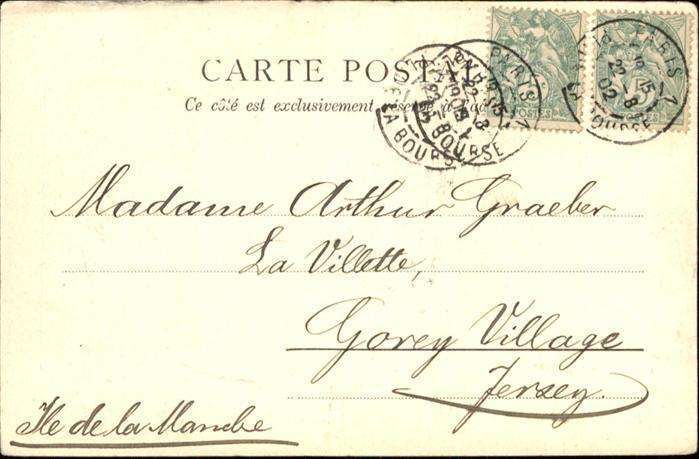 CARTE POSTALE
Ce côté est exclusivement réservé à l'adresse
PARIS
22 - 8
02
BOURSE
LA BOURSE
POSTES
Madame Arthur Graeber
La Villette,
Gorey Village
Jersey.
Ile de la Manche